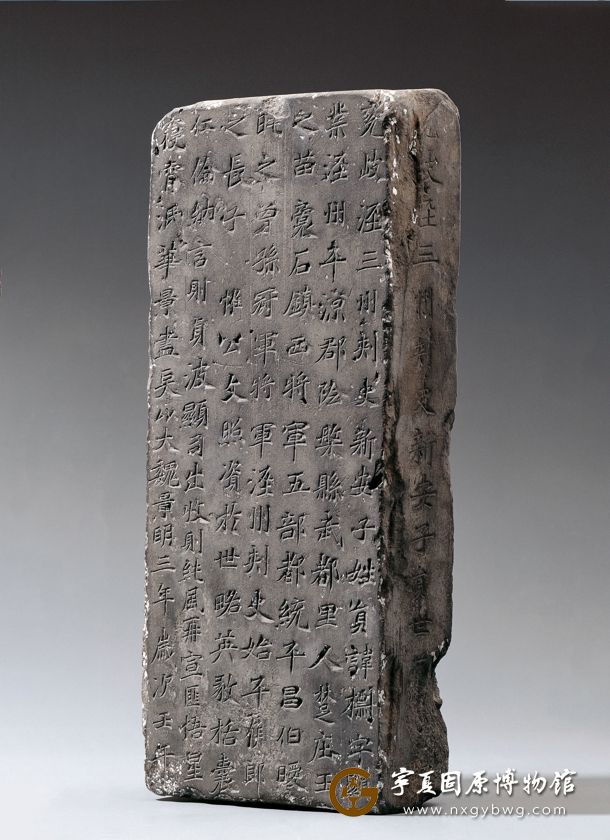 兗岐涇三州刺史新安子員世
兗岐涇三州刺史新安子姓員諱標字顯
業涇州平涼郡陰槃縣武都里人楚莊王
之苗裔石鎮西將軍五部都統平昌伯曖
之曾孫冠軍將軍涇州刺史始平侯郎
之長子惟公文照資於世略英毅括囊
倫納言射貞波顯司出牧射純風再宣匪悟星
背泒華景盡矣以大魏景明三年歲次壬午
宁夏固原博物馆
www.nxgybwg.com